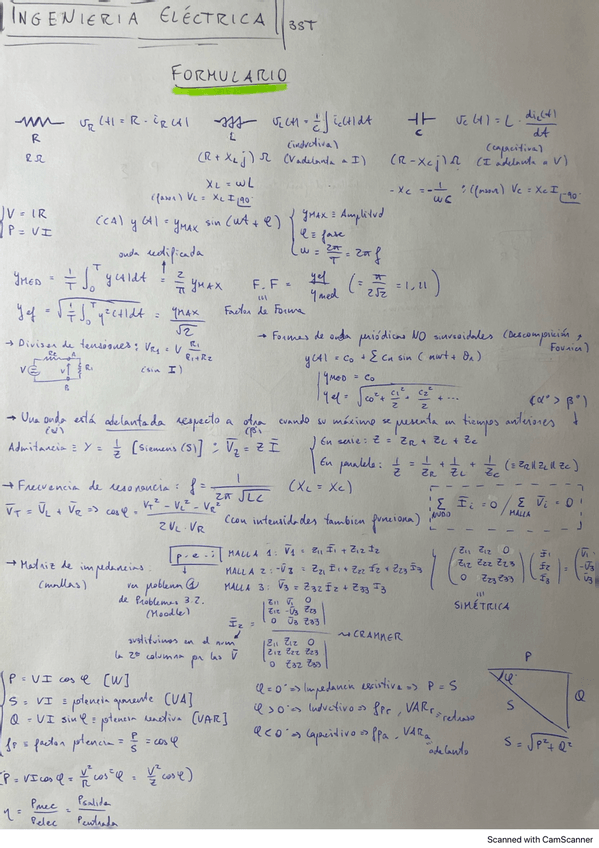 INGENIERIA ELÉCTRICA 3ST
FORMULARIO
R v_R(t) = R · i_R(t) L v_L(t) = 1/C ∫ i_c(t)dt C v_c(t) = L · di_L(t)/dt
(inductiva) (capacitiva)
RΩ (R + X_L j) Ω (V adelanta a I) (R - X_C j) Ω (I adelanta a V)
X_L = ωL - X_C = -1/ωC ; (fasor) V_C = X_C I|-90
(fasor) V_L = X_L I|90
V = IR
P = VI
(CA) y(t) = y_MAX sin(ωt + φ) { y_MAX ≡ Amplitud
φ ≡ fase
ω = 2π/T = 2πf
onda rectificada
y_MED = 1/T ∫₀ᵀ y(t)dt = 2/π y_MAX F.F = y_ef/y_med (= π/2√2 = 1,11)
y_ef = √(1/T ∫₀ᵀ y²(t)dt) = y_MAX/√2 Factor de Forma
→ Divisor de tensiones: V_R1 = V R1/(R1+R2)
(sin I)
→ Formas de onda periódicas NO sinusoidales (Descomposición Fourier)
y(t) = c₀ + Σ cn sin(nωt + θn)
y_MOD = c₀
y_ef = √(c₀² + c₁²/2 + c₂²/2 + ...
(α° > β°)
→ Una onda está adelantada respecto a otra cuando su máximo se presenta en tiempos anteriores
(α) (β)
Admitancia ≡ Y = 1/Z [Siemens (S)] ; V̄_Z = Z Ī
En serie: Z = Z_R + Z_L + Z_C
En paralelo: 1/Z = 1/Z_R + 1/Z_L + 1/Z_C (= Z_R || Z_L || Z_C)
→ Frecuencia de resonancia: f = 1/(2π√LC) (X_L = X_C)
V̄_T = V̄_L + V̄_R => cosφ = (V_T² - V_L² - V_R²)/(2V_L · V_R) (con intensidades tambien funciona)
Σ_NUDO Ī_i = 0 / Σ_MALLA V̄_i = 0
→ Matriz de impedancias:
(mallas)
p.e.:
MALLA 1: V̄₁ = Z11 Ī1 + Z12 Ī2
MALLA 2: -V̄3 = Z21 Ī1 + Z22 Ī2 + Z23 Ī3
MALLA 3: V̄3 = Z32 Ī2 + Z33 Ī3
(Z11 Z12 0
Z12 Z22 Z23
0 Z23 Z33) (Ī1
Ī2
Ī3) = (V̄1
-V̄3
V̄3)
SIMÉTRICA
problema 1
de Problemas 3.2.
(Moodle)
sustituimos en el num
la 2ª columna por las V̄
Ī2 = |Z11 V̄1 0
Z12 -V̄3 Z23
0 V̄3 Z33|
|Z11 Z12 0
Z12 Z22 Z23
0 Z32 Z33|
CRAMMER
P = VI cosφ [W]
S = VI ≡ potencia aparente [VA]
Q = VI sinφ ≡ potencia reactiva [VAR]
fp = factor potencia = P/S = cosφ
φ = 0 => Impedancia resistiva => P = S
φ > 0 => Inductivo => fp_r, VAR_r, retraso
φ < 0 => Capacitivo => fp_a, VAR_a adelanto
P
φ
S
Q
S = √(P² + Q²)
(P = VI cosφ = V²/R cos²φ = V²/Z cosφ)
η = P_mec/P_elec = P_salida/P_entrada
Scanned with CamScanner